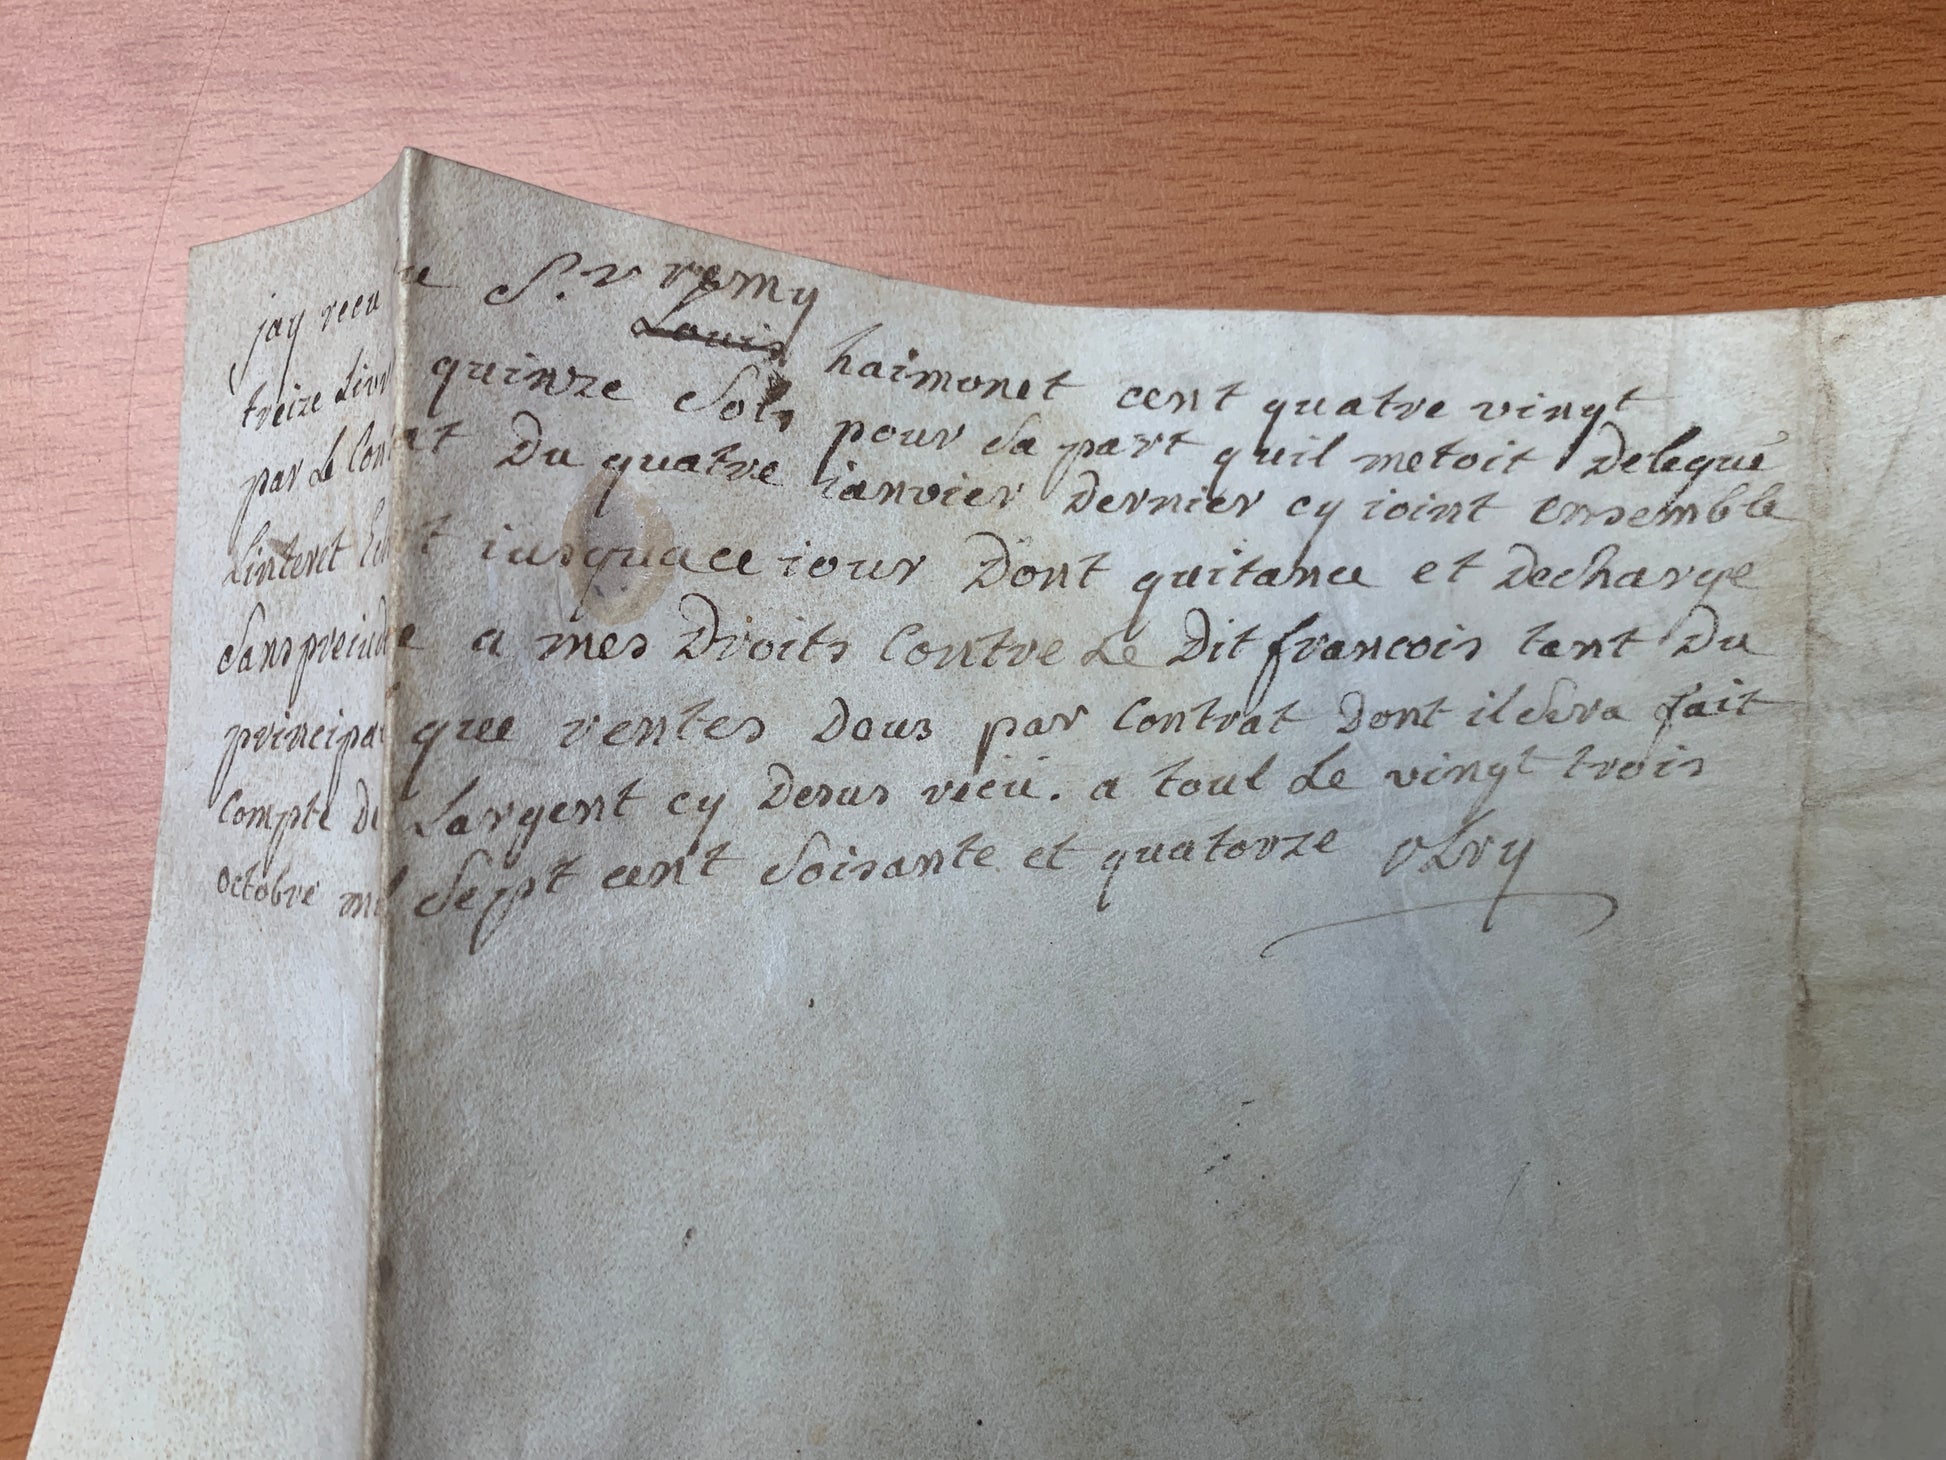 jay recu de S.r remy
Louis haimonet cent quatre vingt
treize Livres quinze Sols pour Sa part quil metoit Delegué
par Le Contrat Du quatre ianvier Dernier cy ioint ensemble
Linteret Echut iusquace iour Dont quitance et Decharge
Sans preiudice a mes Droits Contre Le Dit francois tant Du
principal que rentes Dous par Contrat Dont il Sera fait
Compte de Largent cy Desus recü. a toul Le vingt trois
octobre mil Sept cent Soisante et quatorze oLry